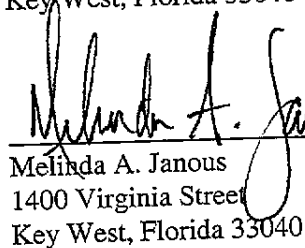 Key West, Florida 33040
Melinda A. Ja
Melinda A. Janous
1400 Virginia Street
Key West, Florida 33040